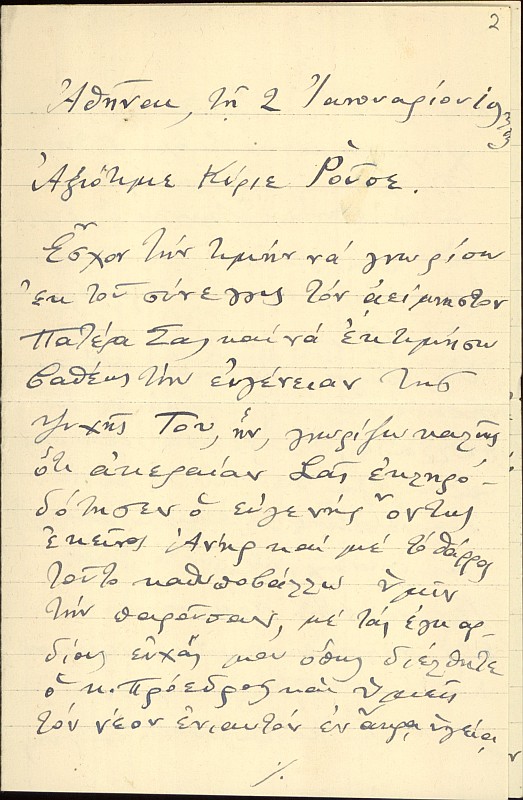 2
Ἀθῆναι, τῇ 2 Ἰανουαρίου 1933
Ἀξιότιμε Κύριε Ροῦσε.
Ἔσχον τὴν τιμὴν νά γνωρίσω
ἐκ τοῦ σύνεγγυς τὸν ἀείμνηστον
Πατέρα Σας καί νά ἐκτιμήσω
βαθέως τὴν εὐγένειαν τῆς
ψυχῆς Του, ἥν, γνωρίζω καλῶς
ὅτι ἀκεραίαν Σᾶς ἐκληρο-
δότησεν ὁ εὐγενής ὄντως
ἐκεῖνος Ἀνήρ καί μέ τό θάρρος
τοῦτο καθυποβάλλω ὑμῖν
τήν παροῦσαν, μέ τάς ἐγκαρ-
δίους εὐχάς μου ὅπως διέλθητε
ὁ κ. Πρόεδρος καί ὑμεῖς
τόν νέον ἐνιαυτόν ἐν ἄκρᾳ ὑγείᾳ
./.